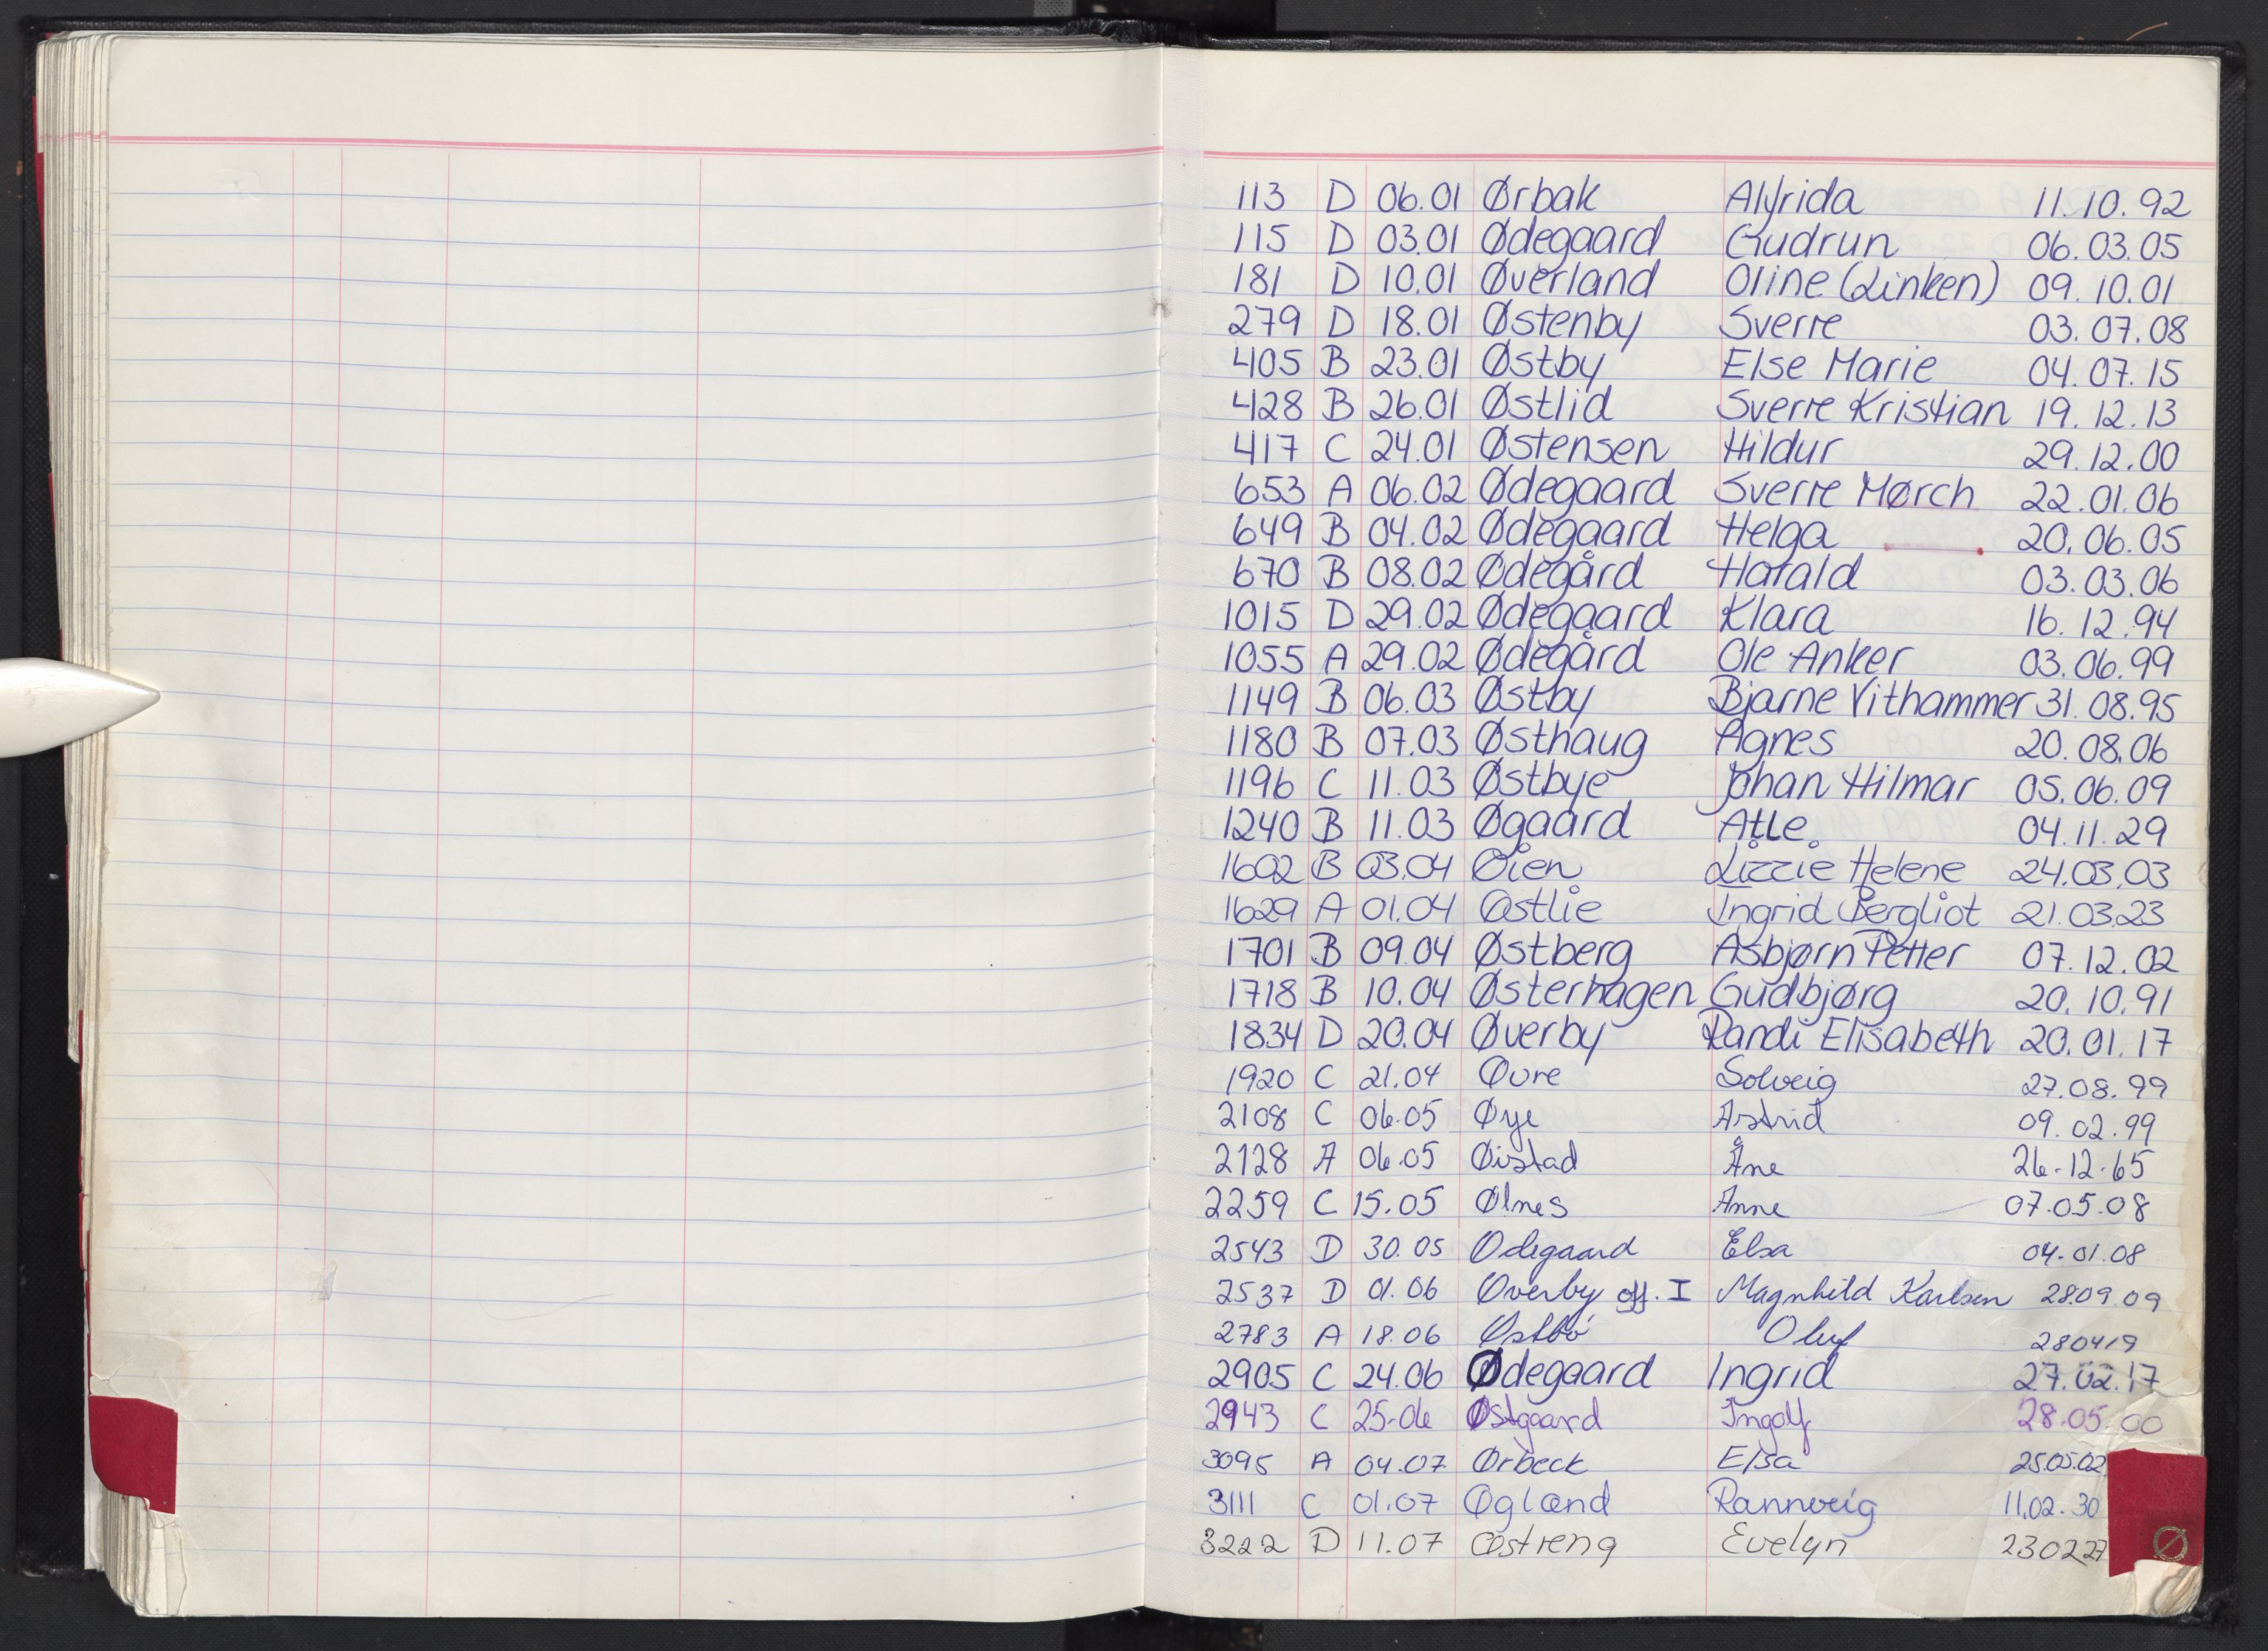 113 D 06.01 Ørbak Alfrida 11.10.92
115 D 03.01 Ødegaard Gudrun 06.03.05
181 D 10.01 Øverland Oline (Linken) 09.10.01
279 D 18.01 Østenby Sverre 03.07.08
405 B 23.01 Østby Else Marie 04.07.15
428 B 26.01 Østlid Sverre Kristian 19.12.13
417 C 24.01 Østensen Hildur 29.12.00
653 A 06.02 Ødegaard Sverre Mørch 22.01.06
649 B 04.02 Ødegaard Helga 20.06.05
670 B 08.02 Ødegård Harald 03.03.06
1015 D 29.02 Ødegaard Klara 16.12.94
1055 A 29.02 Ødegård Ole Anker 03.06.99
1149 B 06.03 Østby Bjarne Vithammer 31.08.95
1180 B 07.03 Østhaug Agnes 20.08.06
1196 C 11.03 Østbye Johan Hilmar 05.06.09
1240 B 11.03 Øgaard Atle 04.11.29
1602 B 03.04 Øien Lizzie Helene 24.03.03
1629 A 01.04 Østlie Ingrid Bergliot 21.03.23
1701 B 09.04 Østberg Asbjørn Petter 07.12.02
1718 B 10.04 Østerhagen Gudbjørg 20.10.91
1834 D 20.04 Øverby Randi Elisabeth 20.01.17
1920 C 21.04 Øvre Solveig 27.08.99
2108 C 06.05 Øye Astrid 09.02.99
2128 A 06.05 Øistad Åne 26.12.65
2259 C 15.05 Ølnes Anne 07.05.08
2543 D 30.05 Ødegaard Elsa 04.01.08
2537 D 01.06 Øverby off. I Magnhild Karlsen 28.09.09
2783 A 18.06 Østbø Oluf 280419
2905 C 24.06 Ødegaard Ingrid 27.02.17
2943 C 25.06 Østgaard Ingolf 28.05.00
3095 A 04.07 Ørbeck Elsa 25.05.02
3111 C 01.07 Øgland Rannveig 11.02.30
3222 D 11.07 Østreng Evelyn 230227
Ø